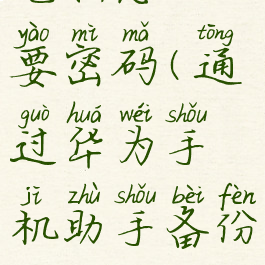 yào mì mǎ tōng
要密码(通
guò huá wéi shǒu
过华为手
jī zhù shǒu bèi fèn
机助手备份